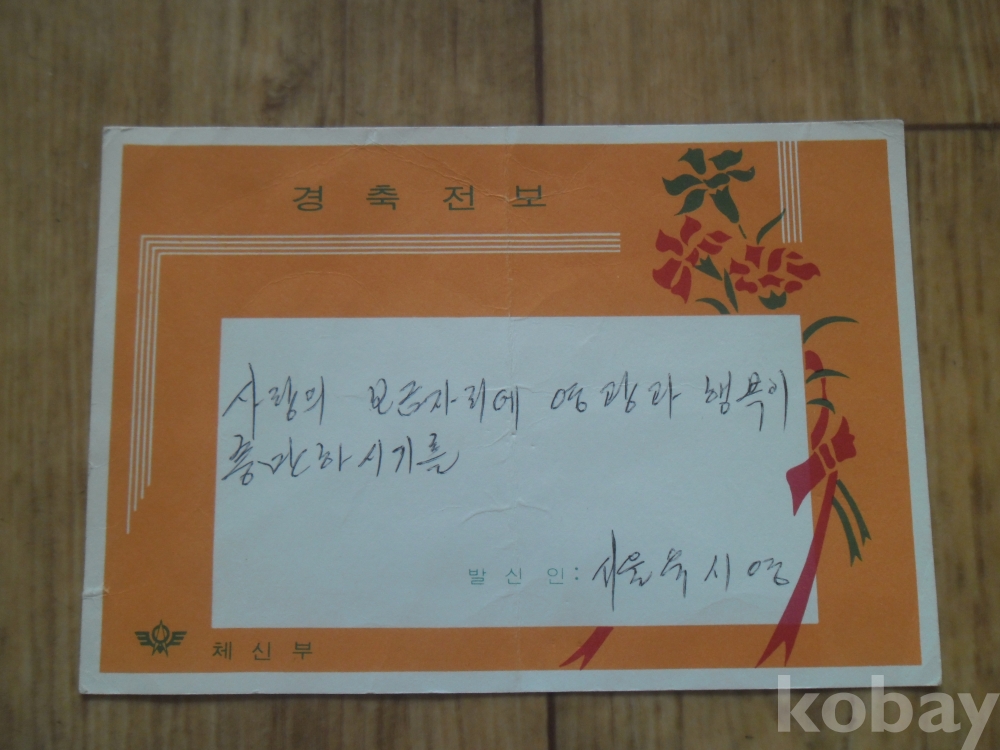 경축전보
사랑의 보금자리에 영광과 행복이
충만하시기를
발신인: 서울 시영
체신부
kobay